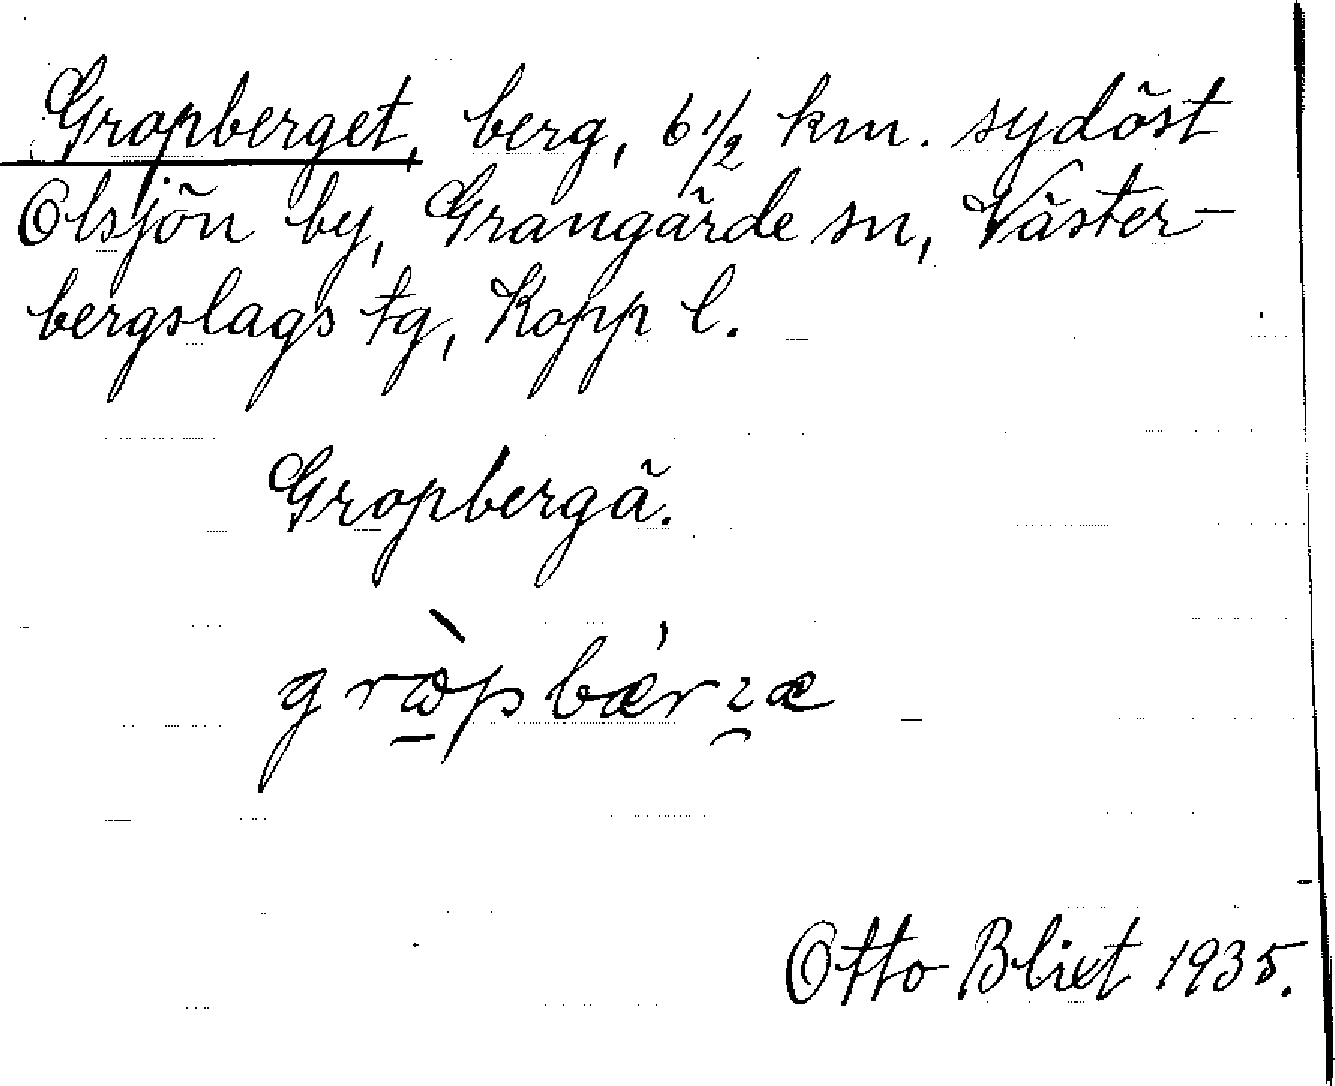 Gropberget, berg, 6 1/2 km. sydöst
Olsjön by, Grangärde sn, Väster-
bergslags tg, Kopp l.
Gropbergä.
Otto Blixt 1935.